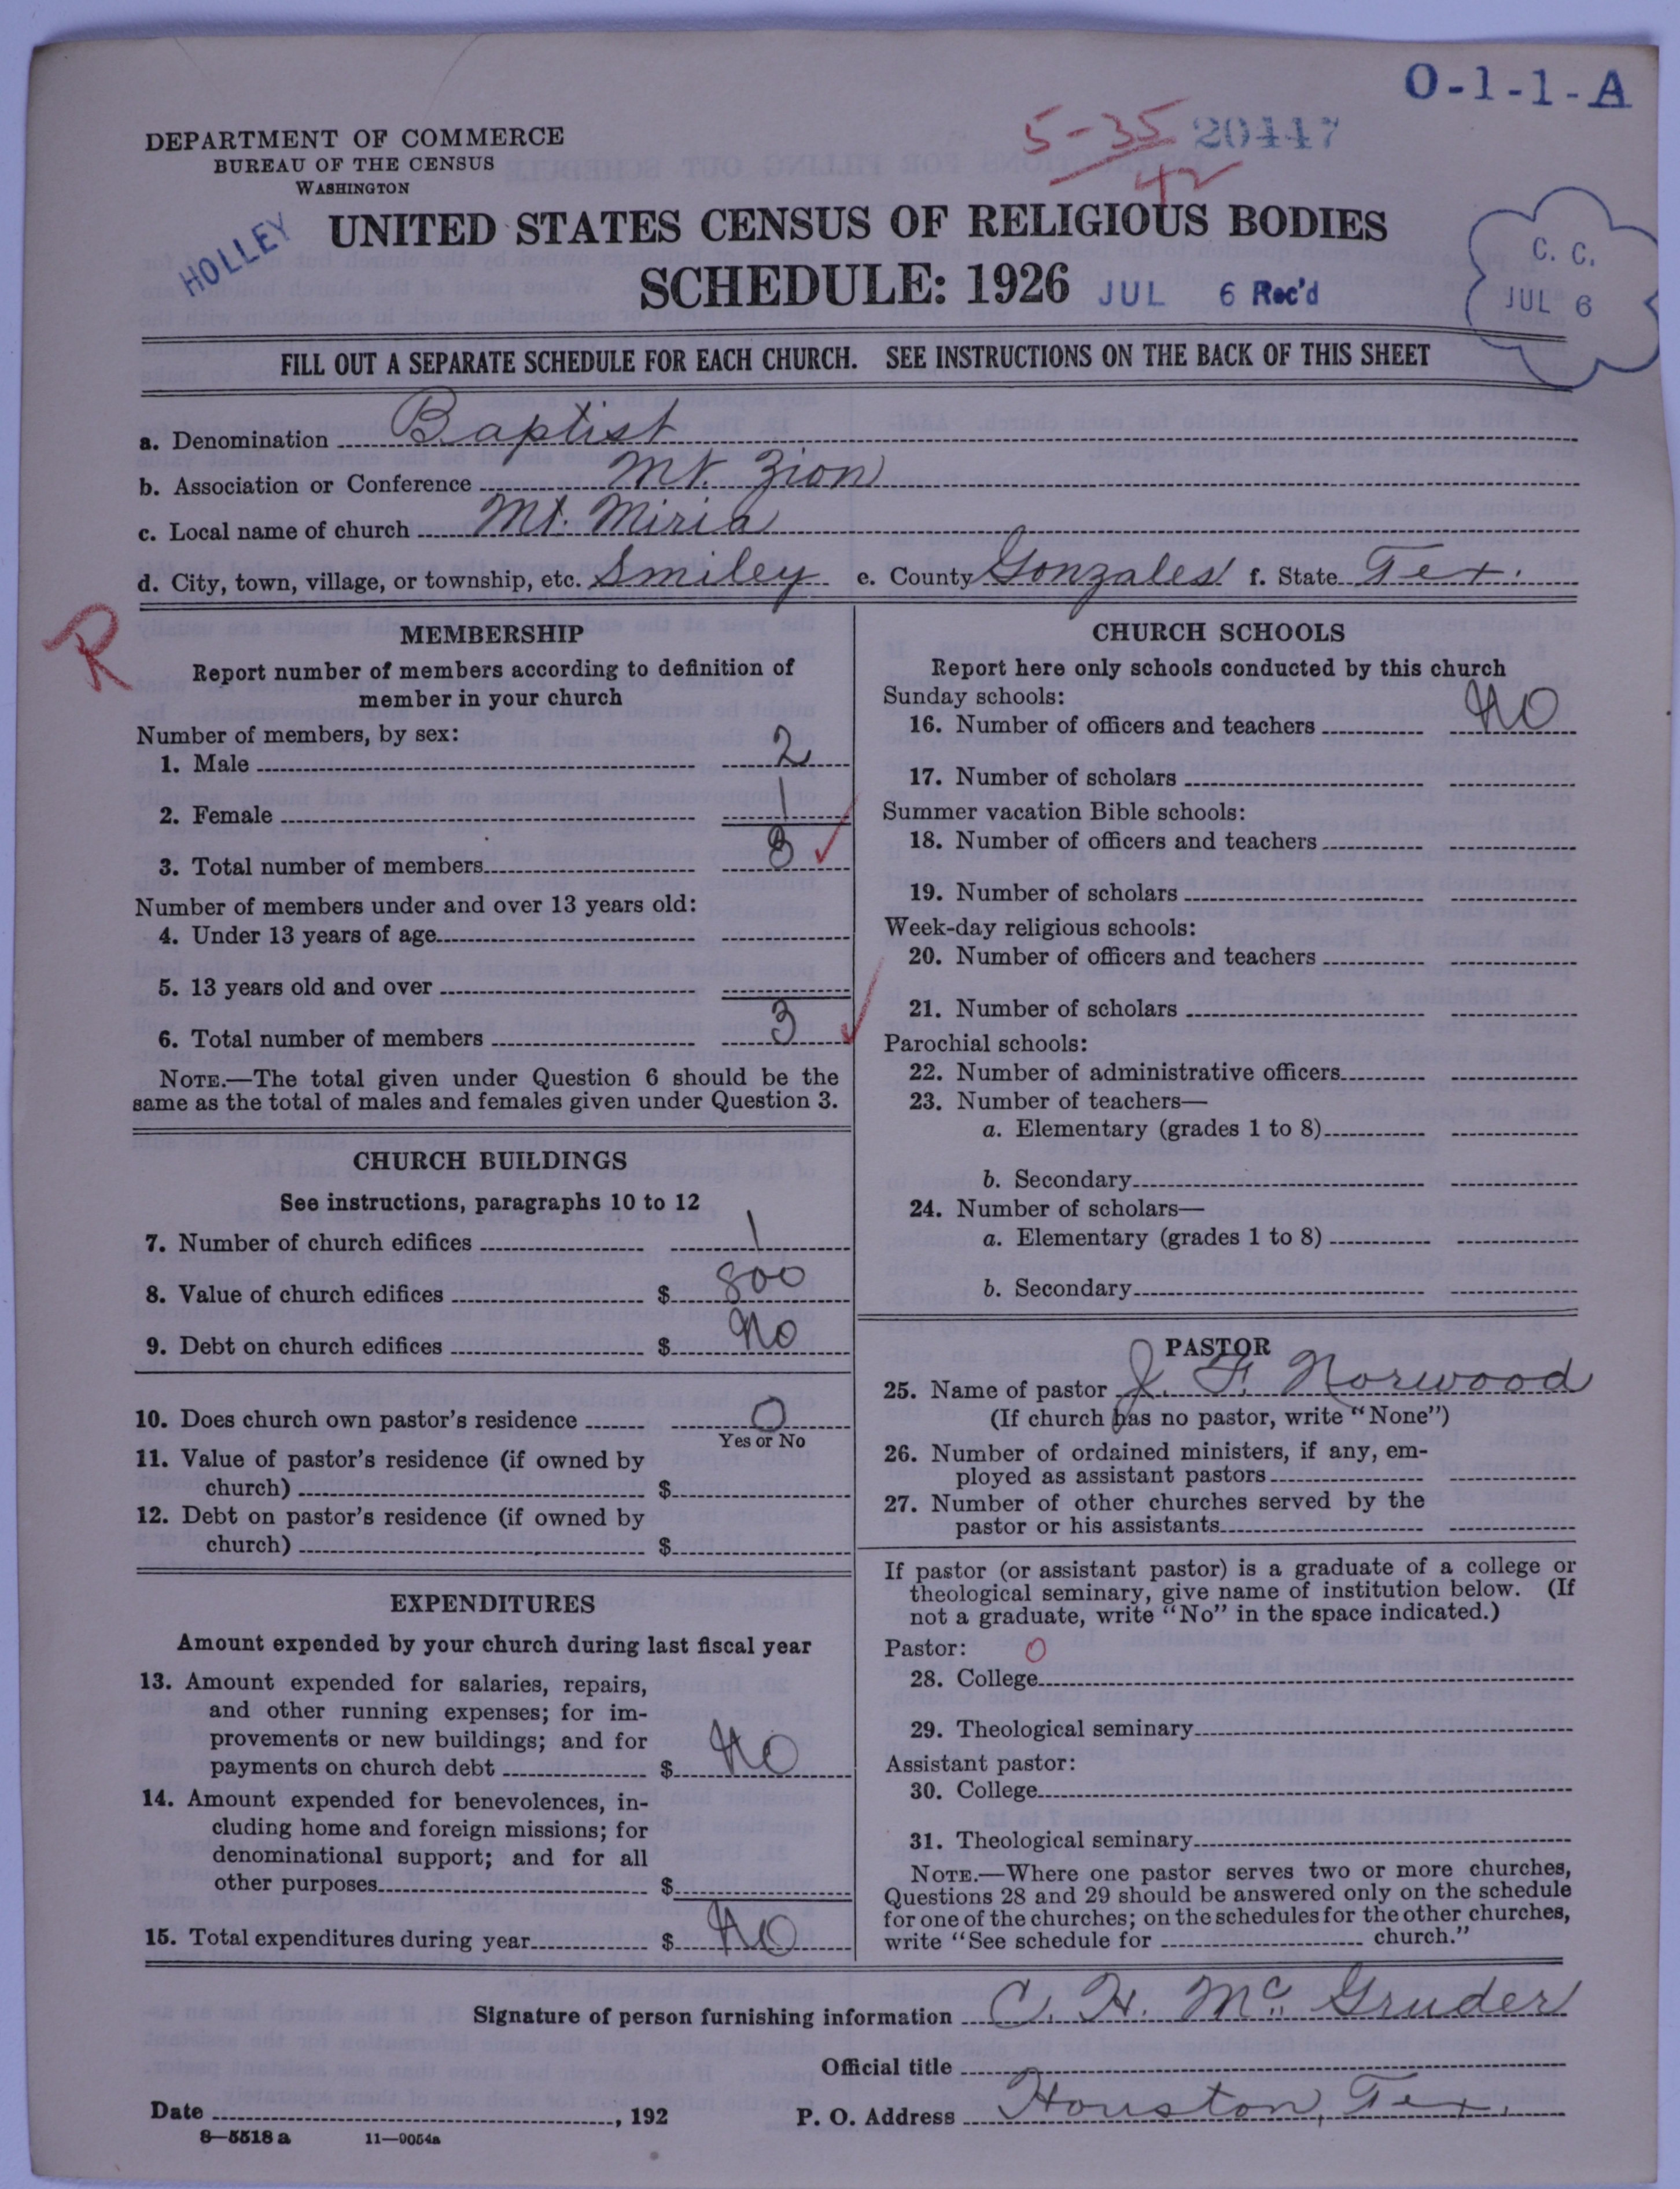 O-1-1-A
5-35 20447
42
DEPARTMENT OF COMMERCE
BUREAU OF THE CENSUS
WASHINGTON
HOLLEY
UNITED STATES CENSUS OF RELIGIOUS BODIES
SCHEDULE: 1926 JUL 6 Rec'd
C. C.
JUL 6
FILL OUT A SEPARATE SCHEDULE FOR EACH CHURCH. SEE INSTRUCTIONS ON THE BACK OF THIS SHEET
a. Denomination Baptist
b. Association or Conference Mt. Zion
c. Local name of church Mt. Miria
d. City, town, village, or township, etc. Smiley e. County Gonzales f. State Tex.
R
MEMBERSHIP
Report number of members according to definition of
member in your church
Number of members, by sex:
1. Male 2
2. Female 1
3. Total number of members 3
Number of members under and over 13 years old:
4. Under 13 years of age
5. 13 years old and over
6. Total number of members 3
NOTE.—The total given under Question 6 should be the
same as the total of males and females given under Question 3.
CHURCH BUILDINGS
See instructions, paragraphs 10 to 12
7. Number of church edifices 1
8. Value of church edifices $ 800
9. Debt on church edifices $ No
10. Does church own pastor's residence 0
Yes or No
11. Value of pastor's residence (if owned by
church) $
12. Debt on pastor's residence (if owned by
church) $
EXPENDITURES
Amount expended by your church during last fiscal year
13. Amount expended for salaries, repairs,
and other running expenses; for im-
provements or new buildings; and for
payments on church debt $ No
14. Amount expended for benevolences, in-
cluding home and foreign missions; for
denominational support; and for all
other purposes $
15. Total expenditures during year $ No
CHURCH SCHOOLS
Report here only schools conducted by this church
Sunday schools:
16. Number of officers and teachers No
17. Number of scholars
Summer vacation Bible schools:
18. Number of officers and teachers
19. Number of scholars
Week-day religious schools:
20. Number of officers and teachers
21. Number of scholars
Parochial schools:
22. Number of administrative officers
23. Number of teachers—
a. Elementary (grades 1 to 8)
b. Secondary
24. Number of scholars—
a. Elementary (grades 1 to 8)
b. Secondary
PASTOR
25. Name of pastor J. F. Norwood
(If church has no pastor, write "None")
26. Number of ordained ministers, if any, em-
ployed as assistant pastors
27. Number of other churches served by the
pastor or his assistants
If pastor (or assistant pastor) is a graduate of a college or
theological seminary, give name of institution below. (If
not a graduate, write "No" in the space indicated.)
Pastor: 0
28. College
29. Theological seminary
Assistant pastor:
30. College
31. Theological seminary
NOTE.—Where one pastor serves two or more churches,
Questions 28 and 29 should be answered only on the schedule
for one of the churches; on the schedules for the other churches,
write "See schedule for church."
Signature of person furnishing information C. H. McGruder
Official title
Date , 192 P. O. Address Houston, Tex.
8—5518 a 11—9054a